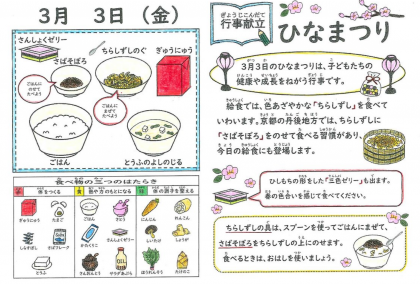 3月 3日（金）
さんしょくゼリー
さばそぼろ
ちらしずしのぐ
ぎゅうにゅう
ごはんに
のせて
たべよう
ごはんに
まぜて
たべよう
ごはん
とうふのよしのじる
食べ物の三つのはたらき
赤
体をつくる
黄
熱や力のもとになる
緑
体の調子を整える
ぎゅうにゅう
たまご
ごはん
さとう
にんじん
れんこん
しらすぼし
さばフレーク
かたくりこ
さんしょくゼリー
しいたけ
しょうが
とうふ
ほうれんそう
たけのこ
ぎょうじこんだて
行事献立
ひなまつり
3月3日のひなまつりは、子どもたちの
健康や成長をねがう行事です。
給食では、色あざやかな「ちらしずし」を食べて
いわいます。京都の丹後地方では、ちらしずしに
「さばそぼろ」をのせて食べる習慣があり、
今日の給食にも登場します。
ひしもちの形をした「三色ゼリー」も出ます。
春の色合いを感じて食べてください。
ちらしずしの具は、スプーンを使ってごはんにまぜて、
さばそぼろをちらしずしの上にのせます。
食べるときは、おはしを使いましょう。